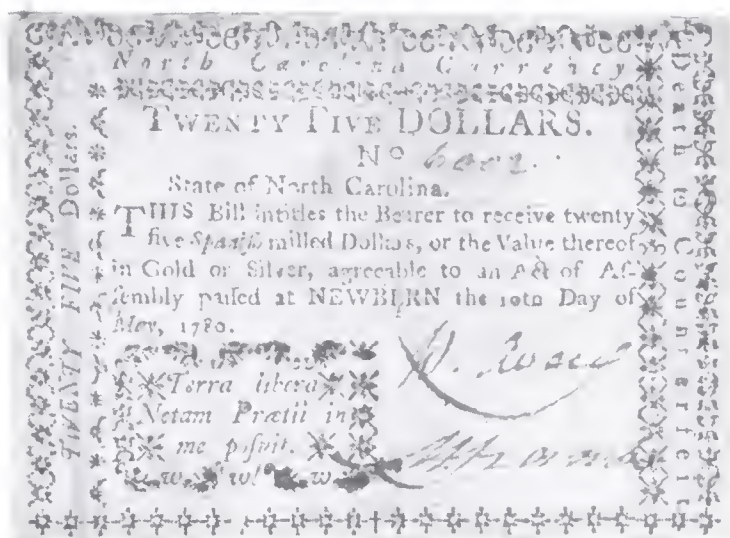 North Carolina Currency
TWENTY FIVE DOLLARS.
No
State of North Carolina.
THIS Bill intitles the Bearer to receive twenty
five Spaniſh milled Dollars, or the Value thereof
in Gold or Silver, agreeable to an Act of Aſ-
ſembly paſſed at NEWBERN the 10th Day of
May, 1780.
Terra libera
Netam Prætii in
me poſuit.
TWENTY FIVE Dollars.
Death to Counterfeit